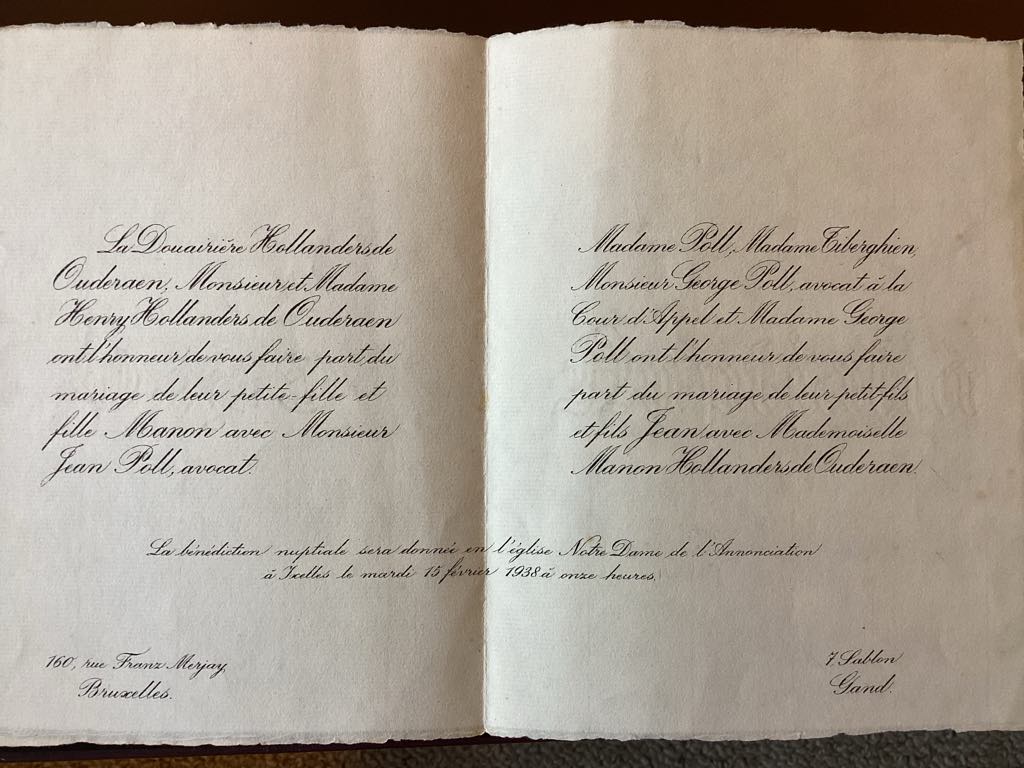 La Douairière Hollanders de
Ouderaen, Monsieur et Madame
Henry Hollanders de Ouderaen
ont l'honneur de vous faire part du
mariage de leur petite-fille et
fille Manon avec Monsieur
Jean Poll, avocat.
Madame Poll, Madame Tiberghien,
Monsieur George Poll, avocat à la
Cour d'Appel et Madame George
Poll ont l'honneur de vous faire
part du mariage de leur petit-fils
et fils Jean avec Mademoiselle
Manon Hollanders de Ouderaen.
La bénédiction nuptiale sera donnée en l'église Notre Dame de l'Annonciation
à Ixelles le mardi 15 février 1938 à onze heures.
160, rue Franz Merjay,
Bruxelles.
7 Sablon
Gand.